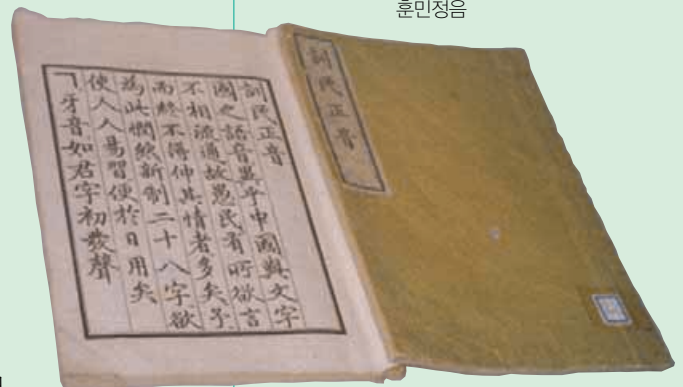 훈민정음
訓民正音
訓民正音
國之語音異乎中國與文字
不相流通故愚民有所欲言
而終不得伸其情者多矣予
為此憫然新制二十八字欲
使人人易習便於日用矣
ㄱ牙音如君字初發聲